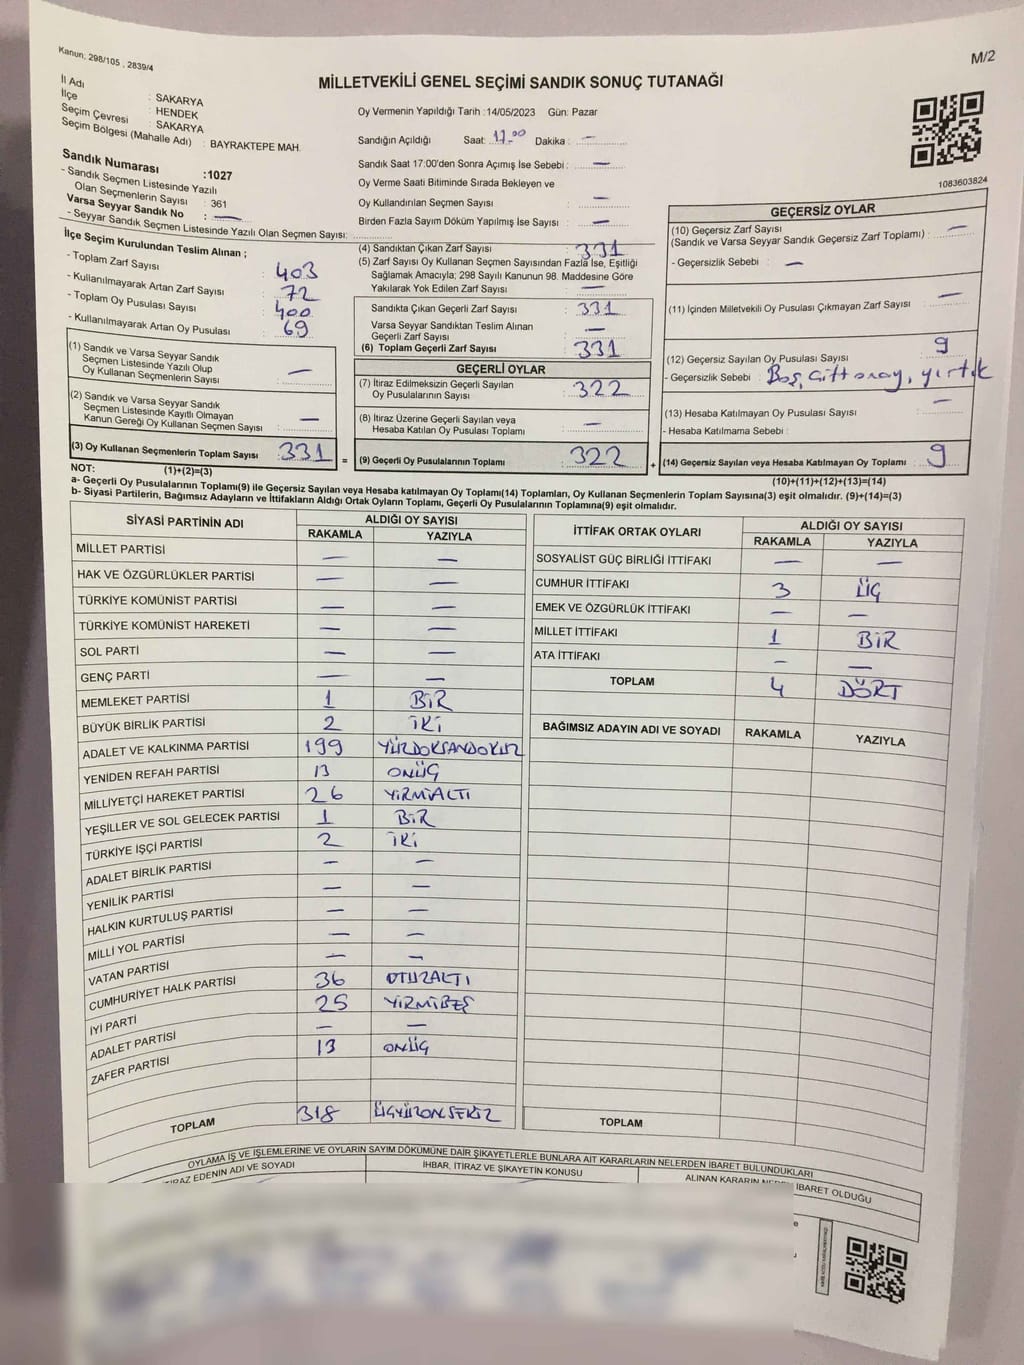 Kanun, 298/105 , 2839/4
M/2
MİLLETVEKİLİ GENEL SEÇİMİ SANDIK SONUÇ TUTANAĞI
İl Adı : SAKARYA
İlçe : HENDEK
Seçim Çevresi : SAKARYA
Seçim Bölgesi (Mahalle Adı) : BAYRAKTEPE MAH.
Sandık Numarası :1027
- Sandık Seçmen Listesinde Yazılı
Olan Seçmenlerin Sayısı : 361
Varsa Seyyar Sandık No : —
- Seyyar Sandık Seçmen Listesinde Yazılı Olan Seçmen Sayısı:
Oy Vermenin Yapıldığı Tarih :14/05/2023 Gün: Pazar
Sandığın Açıldığı Saat: 17.00 Dakika : —
Sandık Saat 17:00'den Sonra Açımış İse Sebebi : —
Oy Verme Saati Bitiminde Sırada Bekleyen ve
Oy Kullandırılan Seçmen Sayısı : —
Birden Fazla Sayım Döküm Yapılmış İse Sayısı : —
1083603824
İlçe Seçim Kurulundan Teslim Alınan ;
- Toplam Zarf Sayısı : 403
- Kullanılmayarak Artan Zarf Sayısı : 72
- Toplam Oy Pusulası Sayısı : 400
- Kullanılmayarak Artan Oy Pusulası : 69
(1) Sandık ve Varsa Seyyar Sandık
Seçmen Listesinde Yazılı Olup
Oy Kullanan Seçmenlerin Sayısı : —
(2) Sandık ve Varsa Seyyar Sandık
Seçmen Listesinde Kayıtlı Olmayan
Kanun Gereği Oy Kullanan Seçmen Sayısı : —
(3) Oy Kullanan Seçmenlerin Toplam Sayısı : 331 =
(1)+(2)=(3)
(4) Sandıktan Çıkan Zarf Sayısı : 331
(5) Zarf Sayısı Oy Kullanan Seçmen Sayısından Fazla İse, Eşitliği
Sağlamak Amacıyla; 298 Sayılı Kanunun 98. Maddesine Göre
Yakılarak Yok Edilen Zarf Sayısı : —
Sandıkta Çıkan Geçerli Zarf Sayısı : 331
Varsa Seyyar Sandıktan Teslim Alınan
Geçerli Zarf Sayısı : —
(6) Toplam Geçerli Zarf Sayısı : 331
GEÇERLİ OYLAR
(7) İtiraz Edilmeksizin Geçerli Sayılan
Oy Pusulalarının Sayısı : 322
(8) İtiraz Üzerine Geçerli Sayılan veya
Hesaba Katılan Oy Pusulası Toplamı : —
(9) Geçerli Oy Pusulalarının Toplamı : 322 +
GEÇERSİZ OYLAR
(10) Geçersiz Zarf Sayısı
(Sandık ve Varsa Seyyar Sandık Geçersiz Zarf Toplamı) : —
- Geçersizlik Sebebi : —
(11) İçinden Milletvekili Oy Pusulası Çıkmayan Zarf Sayısı : —
(12) Geçersiz Sayılan Oy Pusulası Sayısı : 9
- Geçersizlik Sebebi : Boş, çift onay, yırtık
(13) Hesaba Katılmayan Oy Pusulası Sayısı : —
- Hesaba Katılmama Sebebi :
(14) Geçersiz Sayılan veya Hesaba Katılmayan Oy Toplamı : 9
(10)+(11)+(12)+(13)=(14)
NOT:
a- Geçerli Oy Pusulalarının Toplamı(9) ile Geçersiz Sayılan veya Hesaba katılmayan Oy Toplamı(14) Toplamları, Oy Kullanan Seçmenlerin Toplam Sayısına(3) eşit olmalıdır. (9)+(14)=(3)
b- Siyasi Partilerin, Bağımsız Adayların ve İttifakların Aldığı Ortak Oyların Toplamı, Geçerli Oy Pusulalarının Toplamına(9) eşit olmalıdır.
SİYASİ PARTİNİN ADI ALDIĞI OY SAYISI
RAKAMLA YAZIYLA
MİLLET PARTİSİ — —
HAK VE ÖZGÜRLÜKLER PARTİSİ — —
TÜRKİYE KOMÜNİST PARTİSİ — —
TÜRKİYE KOMÜNİST HAREKETİ — —
SOL PARTİ — —
GENÇ PARTİ — —
MEMLEKET PARTİSİ 1 BİR
BÜYÜK BİRLİK PARTİSİ 2 İKİ
ADALET VE KALKINMA PARTİSİ 199 YÜZDOKSANDOKUZ
YENİDEN REFAH PARTİSİ 13 ONÜÇ
MİLLİYETÇİ HAREKET PARTİSİ 26 YİRMİALTI
YEŞİLLER VE SOL GELECEK PARTİSİ 1 BİR
TÜRKİYE İŞÇİ PARTİSİ 2 İKİ
ADALET BİRLİK PARTİSİ — —
YENİLİK PARTİSİ — —
HALKIN KURTULUŞ PARTİSİ — —
MİLLİ YOL PARTİSİ — —
VATAN PARTİSİ — —
CUMHURİYET HALK PARTİSİ 36 OTUZALTI
İYİ PARTİ 25 YİRMİBEŞ
ADALET PARTİSİ — —
ZAFER PARTİSİ 13 ONÜÇ
TOPLAM 318 ÜÇYÜZONSEKİZ
İTTİFAK ORTAK OYLARI ALDIĞI OY SAYISI
RAKAMLA YAZIYLA
SOSYALİST GÜÇ BİRLİĞİ İTTİFAKI — —
CUMHUR İTTİFAKI 3 ÜÇ
EMEK VE ÖZGÜRLÜK İTTİFAKI — —
MİLLET İTTİFAKI 1 BİR
ATA İTTİFAKI — —
TOPLAM 4 DÖRT
BAĞIMSIZ ADAYIN ADI VE SOYADI RAKAMLA YAZIYLA
TOPLAM
OYLAMA İŞ VE İŞLEMLERİNE VE OYLARIN SAYIM DÖKÜMÜNE DAİR ŞİKAYETLERLE BUNLARA AİT KARARLARIN NELERDEN İBARET BULUNDUKLARI
EDENİN ADI VE SOYADI İHBAR, İTİRAZ VE ŞİKAYETİN KONUSU ALINAN KARARIN İBARET OLDUĞU